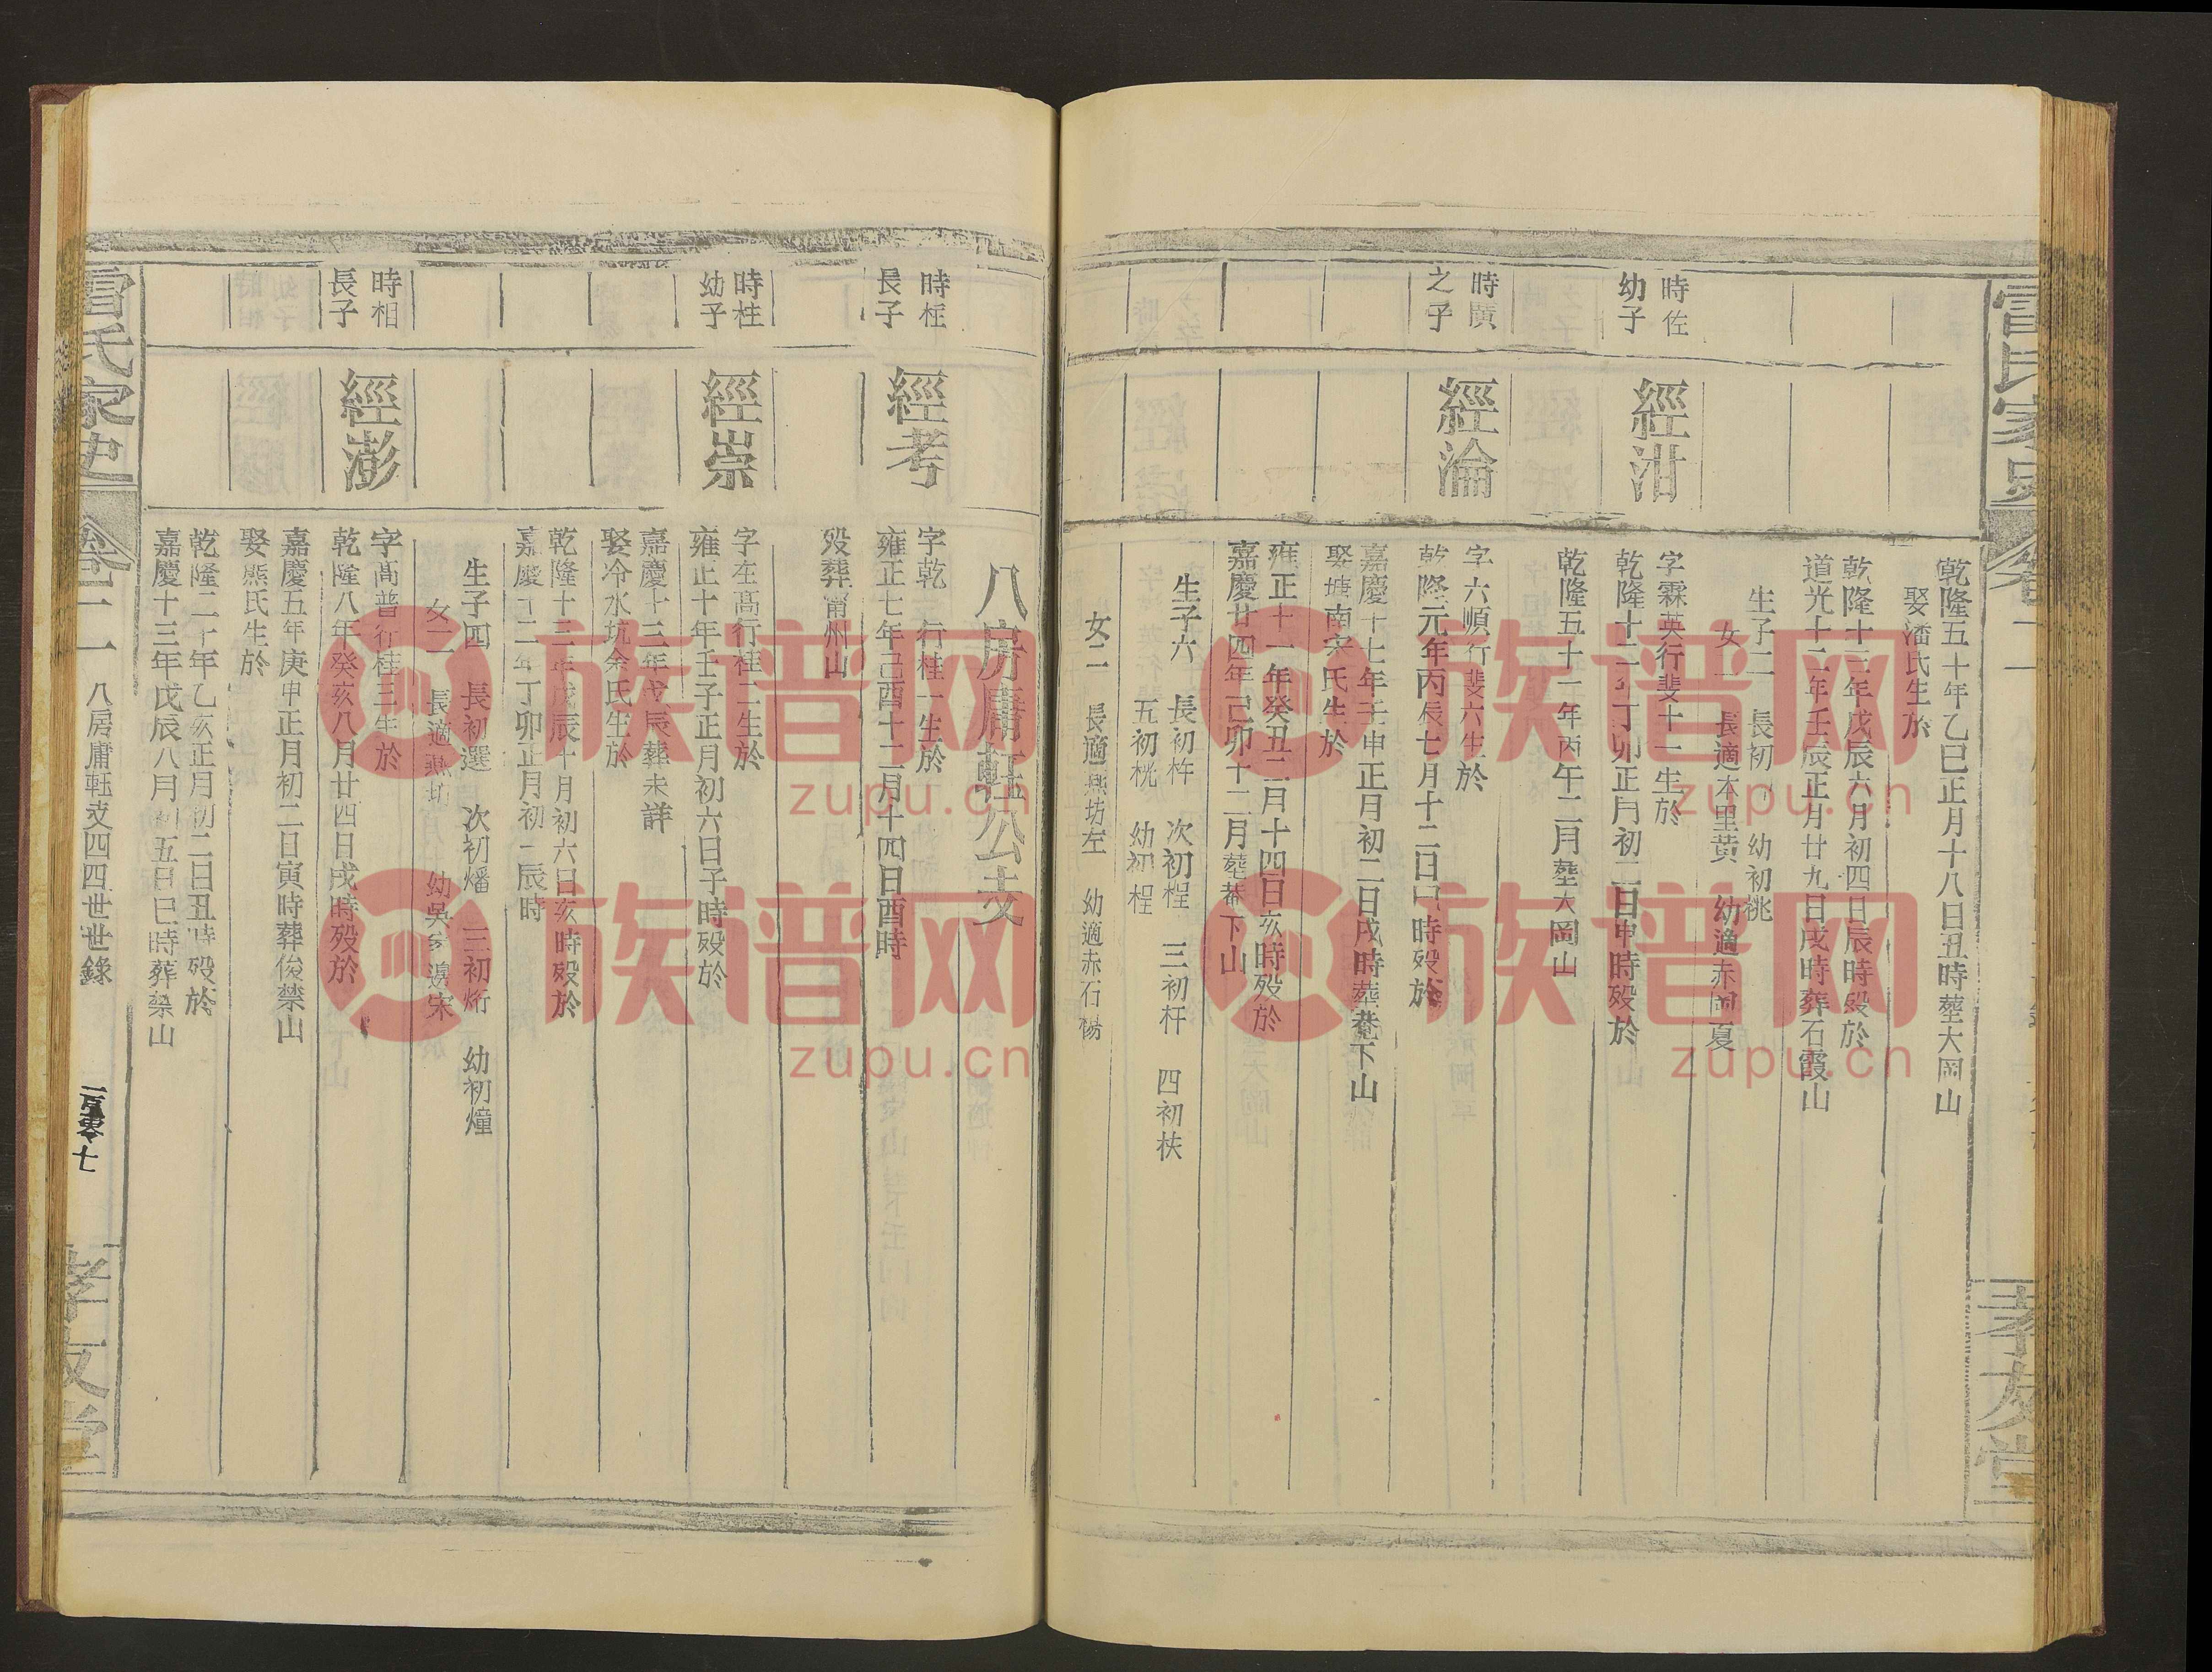 雷氏家史
卷二
孝友堂
乾隆五十年乙巳正月十八日丑時葬大岡山
娶潘氏生於
乾隆十三年戊辰六月初四日辰時殁於
道光十二年壬辰正月廿九日戌時葬石霞山
生子二 長初 幼初桃
女二 長適本里黄 幼適赤岡夏
時佐
幼子
經泔
字霖英行斐十一生於
乾隆十二年丁卯正月初二日申時殁於
乾隆五十一年丙午二月葬大岡山
時廣
之子
經淪
字六順行斐六生於
乾隆元年丙辰七月十二日 時殁於
嘉慶十七年壬申正月初二日戌時葬菴下山
娶塘南宋氏生於
雍正十一年癸丑二月十四日亥時殁於
嘉慶廿四年己卯十二月葬菴下山
生子六 長初杵 次初程 三初杆 四初扶
五初桄 幼初桯
女二 長適熊坊左 幼適赤石楊
八房庸軠公支
時枉
長子
經考
字乾 行桂一生於
雍正七年己酉十二月十四日酉時
殁葬甯州山
時枉
幼子
經崇
字在高行桂二生於
雍正十年壬子正月初六日子時殁於
嘉慶十三年戊辰葬未詳
娶冷水坑余氏生於
乾隆十三年戊辰十月初六日亥時殁於
嘉慶十二年丁卯正月初二辰時
生子四 長初選 次初燔 三初炘 幼初燑
女二 長適熊坊 幼吳 邊宋
時相
長子
經澎
字高普行桂三生於
乾隆八年癸亥八月廿四日戌時殁於
嘉慶五年庚申正月初二日寅時葬俊禁山
娶熊氏生於
乾隆二十年乙亥正月初二日丑時殁於
嘉慶十三年戊辰八月初五日巳時葬禁山
雷氏家史
卷二
八房庸軠支四四世世錄
一百零七
孝友堂
族谱网
zupu.cn
族谱网
zupu.cn
族谱网
zupu.cn
族谱网
zupu.cn